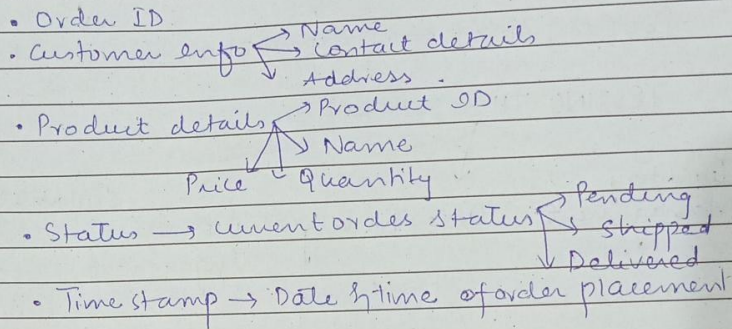 • Order ID
→ Name
• Customer info → Contact details
→ Address .
• Product details → Product ID
→ Name
Price Quantity
• Status → current order status → Pending
→ Shipped
→ Delivered
• Time stamp → Date & time of order placement